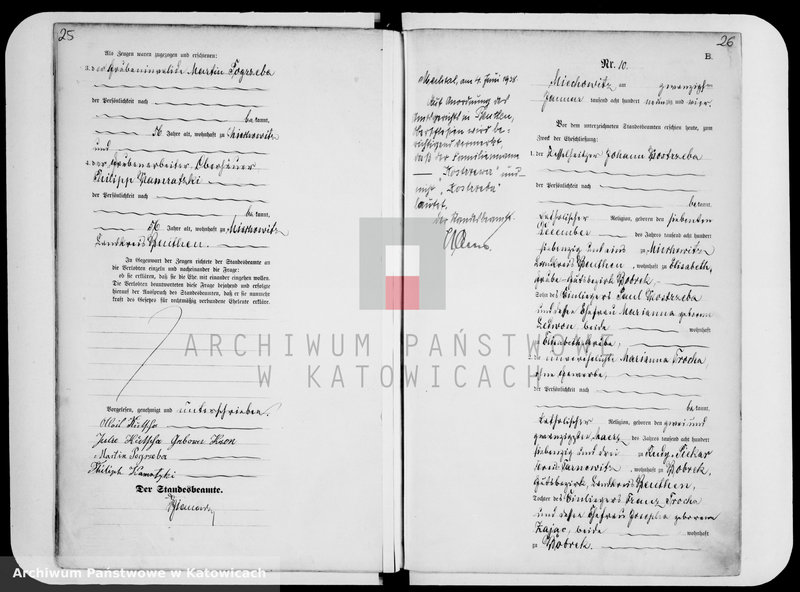 25
Als Zeugen waren zugezogen und erschienen:
1. der Grubeninvalide Martin Pogrzeba
der Persönlichkeit nach
be kannt,
56 Jahre alt, wohnhaft zu Miechowitz
und
2. der Grubenarbeiter Oberhäuer
Philipp
der Persönlichkeit nach
be kannt,
Jahre alt, wohnhaft zu Miechowitz
Landkreis Beuthen.
In Gegenwart der Zeugen richtete der Standesbeamte an
die Verlobten einzeln und nacheinander die Frage:
ob sie erklären, daß sie die Ehe mit einander eingehen wollen.
Die Verlobten beantworteten diese Frage bejahend und erfolgte
hierauf der Ausspruch des Standesbeamten, daß er sie nunmehr
kraft des Gesetzes für rechtmäßig verbundene Eheleute erkläre.
Vorgelesen, genehmigt und unterschrieben.
Julie geborene
Martin Pogrzeba
Philipp
Der Standesbeamte.
26
B.
Nr. 10.
Miechowitz am zwanzigsten
Januar tausend acht hundert neunzig und vier.
Vor dem unterzeichneten Standesbeamten erschien heute, zum
Zweck der Eheschließung:
1. der Johann Kostrzeba
der Persönlichkeit nach
be kannt,
katholischer Religion, geboren den siebenten
Dezember des Jahres tausend acht hundert
siebenzig und eins zu Miechowitz
Landkreis Beuthen, wohnhaft zu Elisabeth
Grube Gutsbezirk Bobrek,
Sohn des Einliegers Paul Kostrzeba
und dessen Ehefrau Marianna geborene
beide wohnhaft
zu Elisabethgrube,
2. die unverehelichte Marianna Trocha,
ohne Gewerbe,
der Persönlichkeit nach
be kannt,
katholischer Religion, geboren den zwei und
zwanzigsten März des Jahres tausend acht hundert
siebenzig und drei zu Rudy-Piekar
Kreis Tarnowitz, wohnhaft zu Bobrek,
Gutsbezirk, Landkreis Beuthen,
Tochter des Einliegers Franz Trocha
und dessen Ehefrau Josepha geborene
Zajac, beide wohnhaft
zu Bobrek.
am 4. Juni 1938
Auf Anordnung des
Amtsgerichts in Beuthen,
Oberschlesien wird be-
richtigend vermerkt,
daß der Familienname
"
" und
nicht "Kostrzeba"
lautet.
Der Standesbeamte.
ARCHIWUM PAŃSTWOWE
W KATOWICACH
Archiwum Państwowe w Katowicach